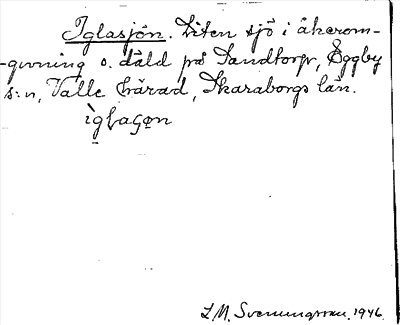 Iglasjön. Liten sjö i åkerom-
-givning o. däld på Sandtorp, Eggby
s:n, Valle härad, Skaraborgs län.
ìglaʂøn
L.M. Svenungsson. 1946.